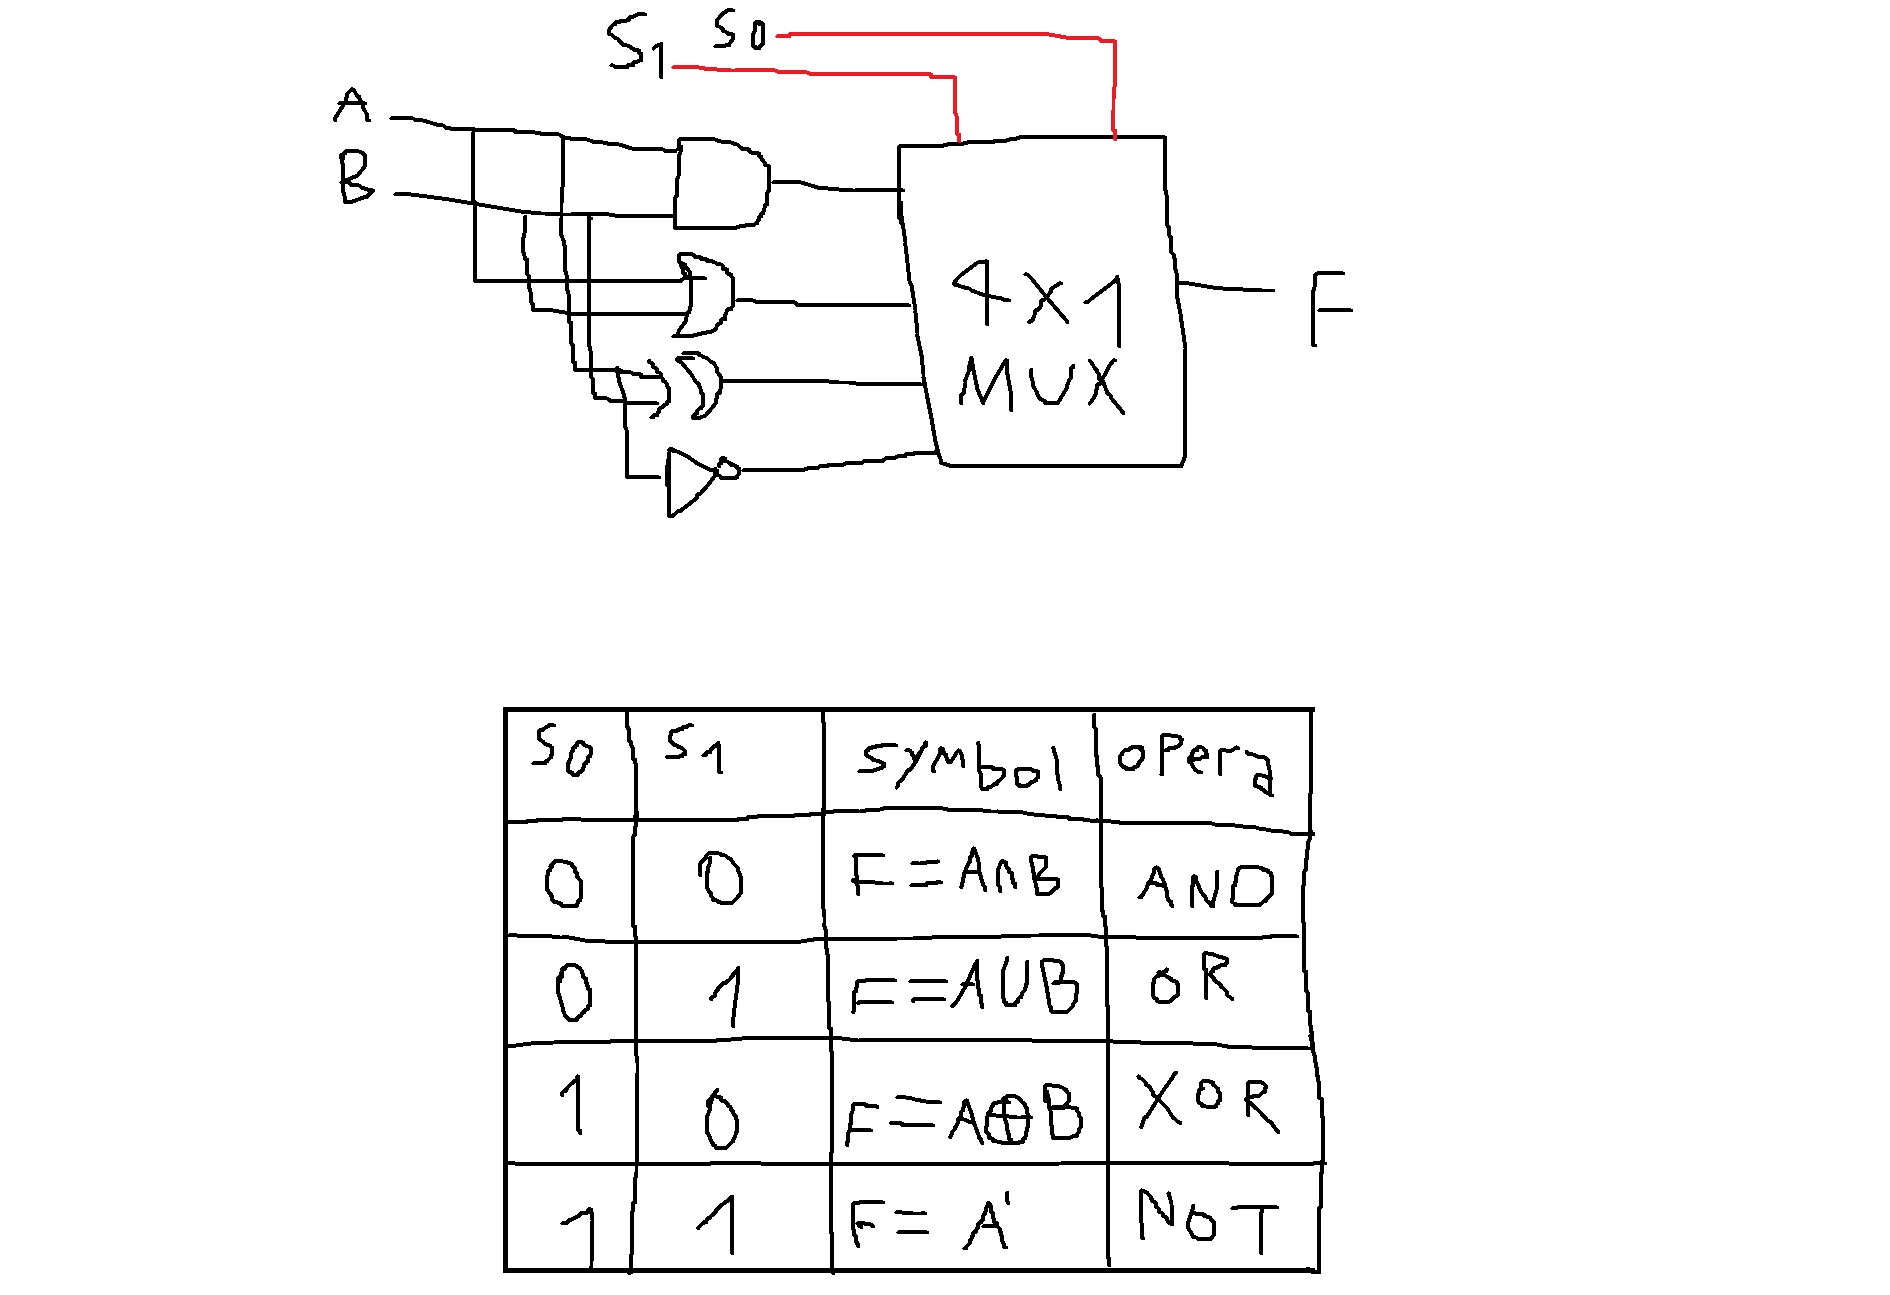 S1 S0
A
B
4x1
MUX
F
S0 S1 symbol opera
0 0 F=A∩B AND
0 1 F=A∪B OR
1 0 F=A⊕B XOR
1 1 F=A' NOT